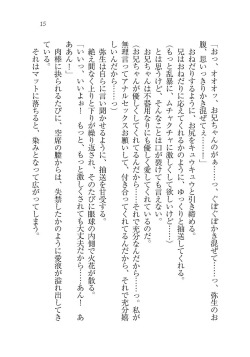 15
「おっ、オオオッ、お兄ちゃんのがあ……っ、ぐぽぐぽかき混ぜて……っ、弥生のお
腹、思いっきりかき混ぜてぇ……！」
おねだりするように、お尻をキュウキュウと引き締める。
兄はおねだりに応えてくれるかのように、ゆっくりと抽送してくれる。
（もっと乱暴に、ムチャクチャに激しくして欲しいけど……）
とは思うけど、そんなことは口が裂けても言えない。
お兄ちゃんは不器用なりにも優しく愛してくれているのだ。
（お兄ちゃんが優しくしてくれてるんだから……それで充分なんだから……っ。私が
無理言ってアナルセックスお願いして、付き合ってくれてるんだから、それで充分嬉
しいんだから……っ）
弥生は自らに言い聞かせるように、抽送を甘受する。
絶え間なく上りと下りが繰り返され、そのたびに眼球の内側で火花が散る。
「いいっ、いい、よぉ……もっと、もっと激しくしても大丈夫だから……あんっ　あ
ああん！」
肉棒に抉られるたびに、空席の膣からは、失禁したかのように愛液が溢れ出してき
ている。
それはマットに落ちると、染みとなって広がってしまう。